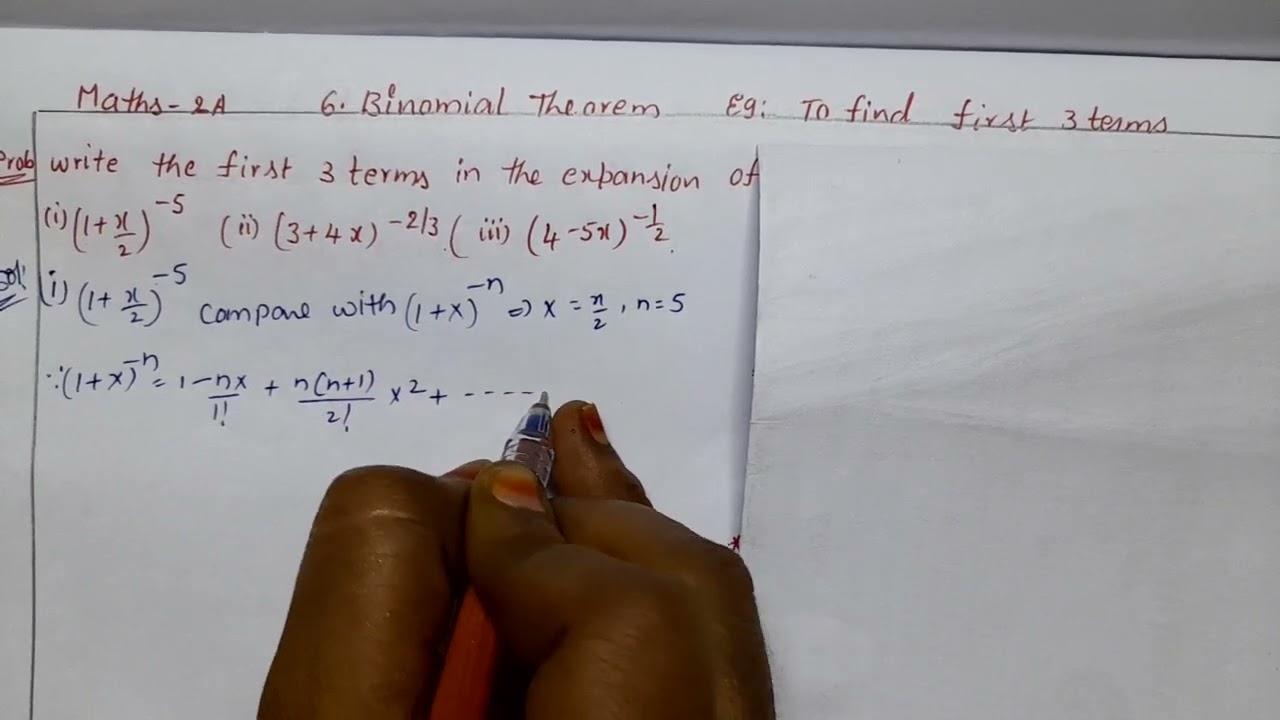 Maths-2A 6. Binomial Theorem Eg: To find first 3 terms
Prob write the first 3 terms in the expansion of
(i) (1+x/2)^-5 (ii) (3+4x)^-2/3. (iii) (4-5x)^-1/2.
Sol: (i) (1+x/2)^-5 compare with (1+x)^-n ⇒ x = x/2, n=5
∵ (1+x)^-n = 1 - nx/1! + n(n+1)/2! x^2 + -----